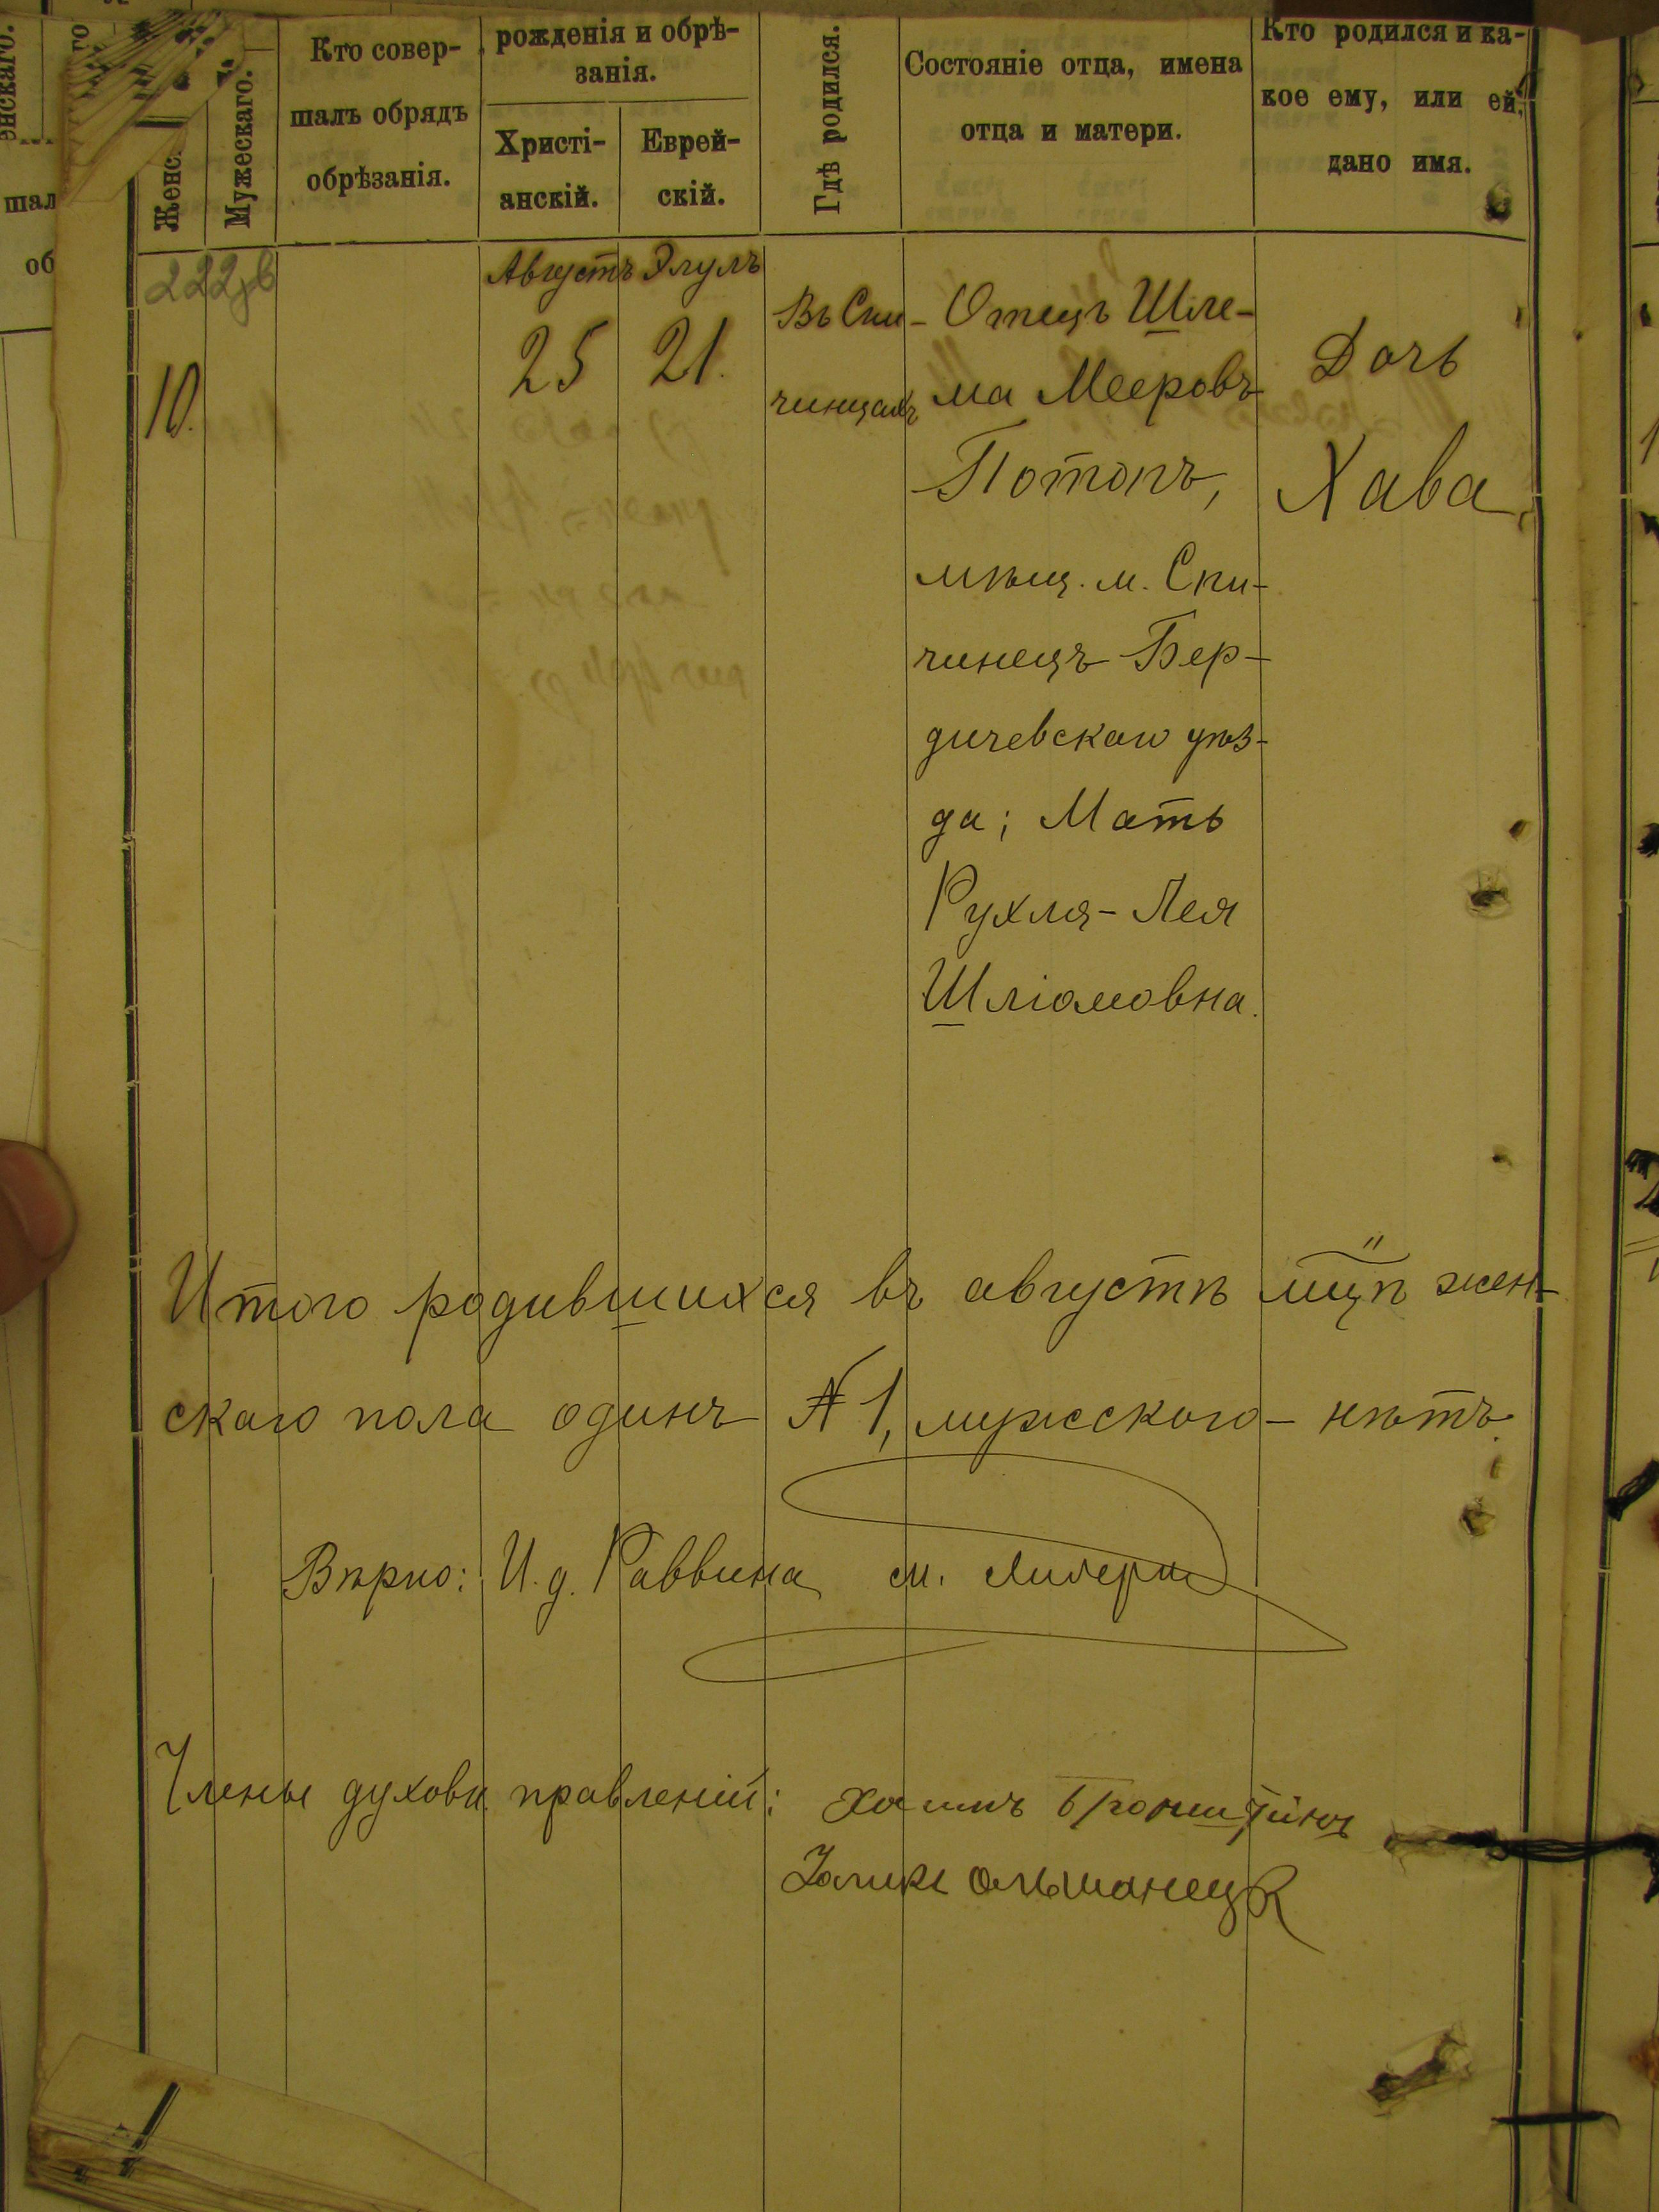 Женс
Мужескаго.
Кто совер-
шалъ обрядъ
обрѣзанія.
рожденія и обрѣ-
занія.
Христі-
анскій.
Еврей-
скій.
Гдѣ родился.
Состояніе отца, имена
отца и матери.
Кто родился и ка-
кое ему, или ей,
дано имя.
222
10.
Августъ
25
Элулъ
21.
Въ Спи-
чинцахъ
Отецъ Шле-
ма Мееровъ
Потопъ,
мѣщ. м. Спи-
чинецъ Бер-
дичевскаго уѣз-
да; Мать
Рухля-Лея
Шліомовна.
Дочь
Хава.
Итого родившихся въ августѣ мцѣ жен-
скаго пола одинъ № 1, мужского - нѣтъ.
Вѣрно: И. д. Раввина
Члены духовн. правленій: Хаимъ Бронштейнъ
Ольшанецк